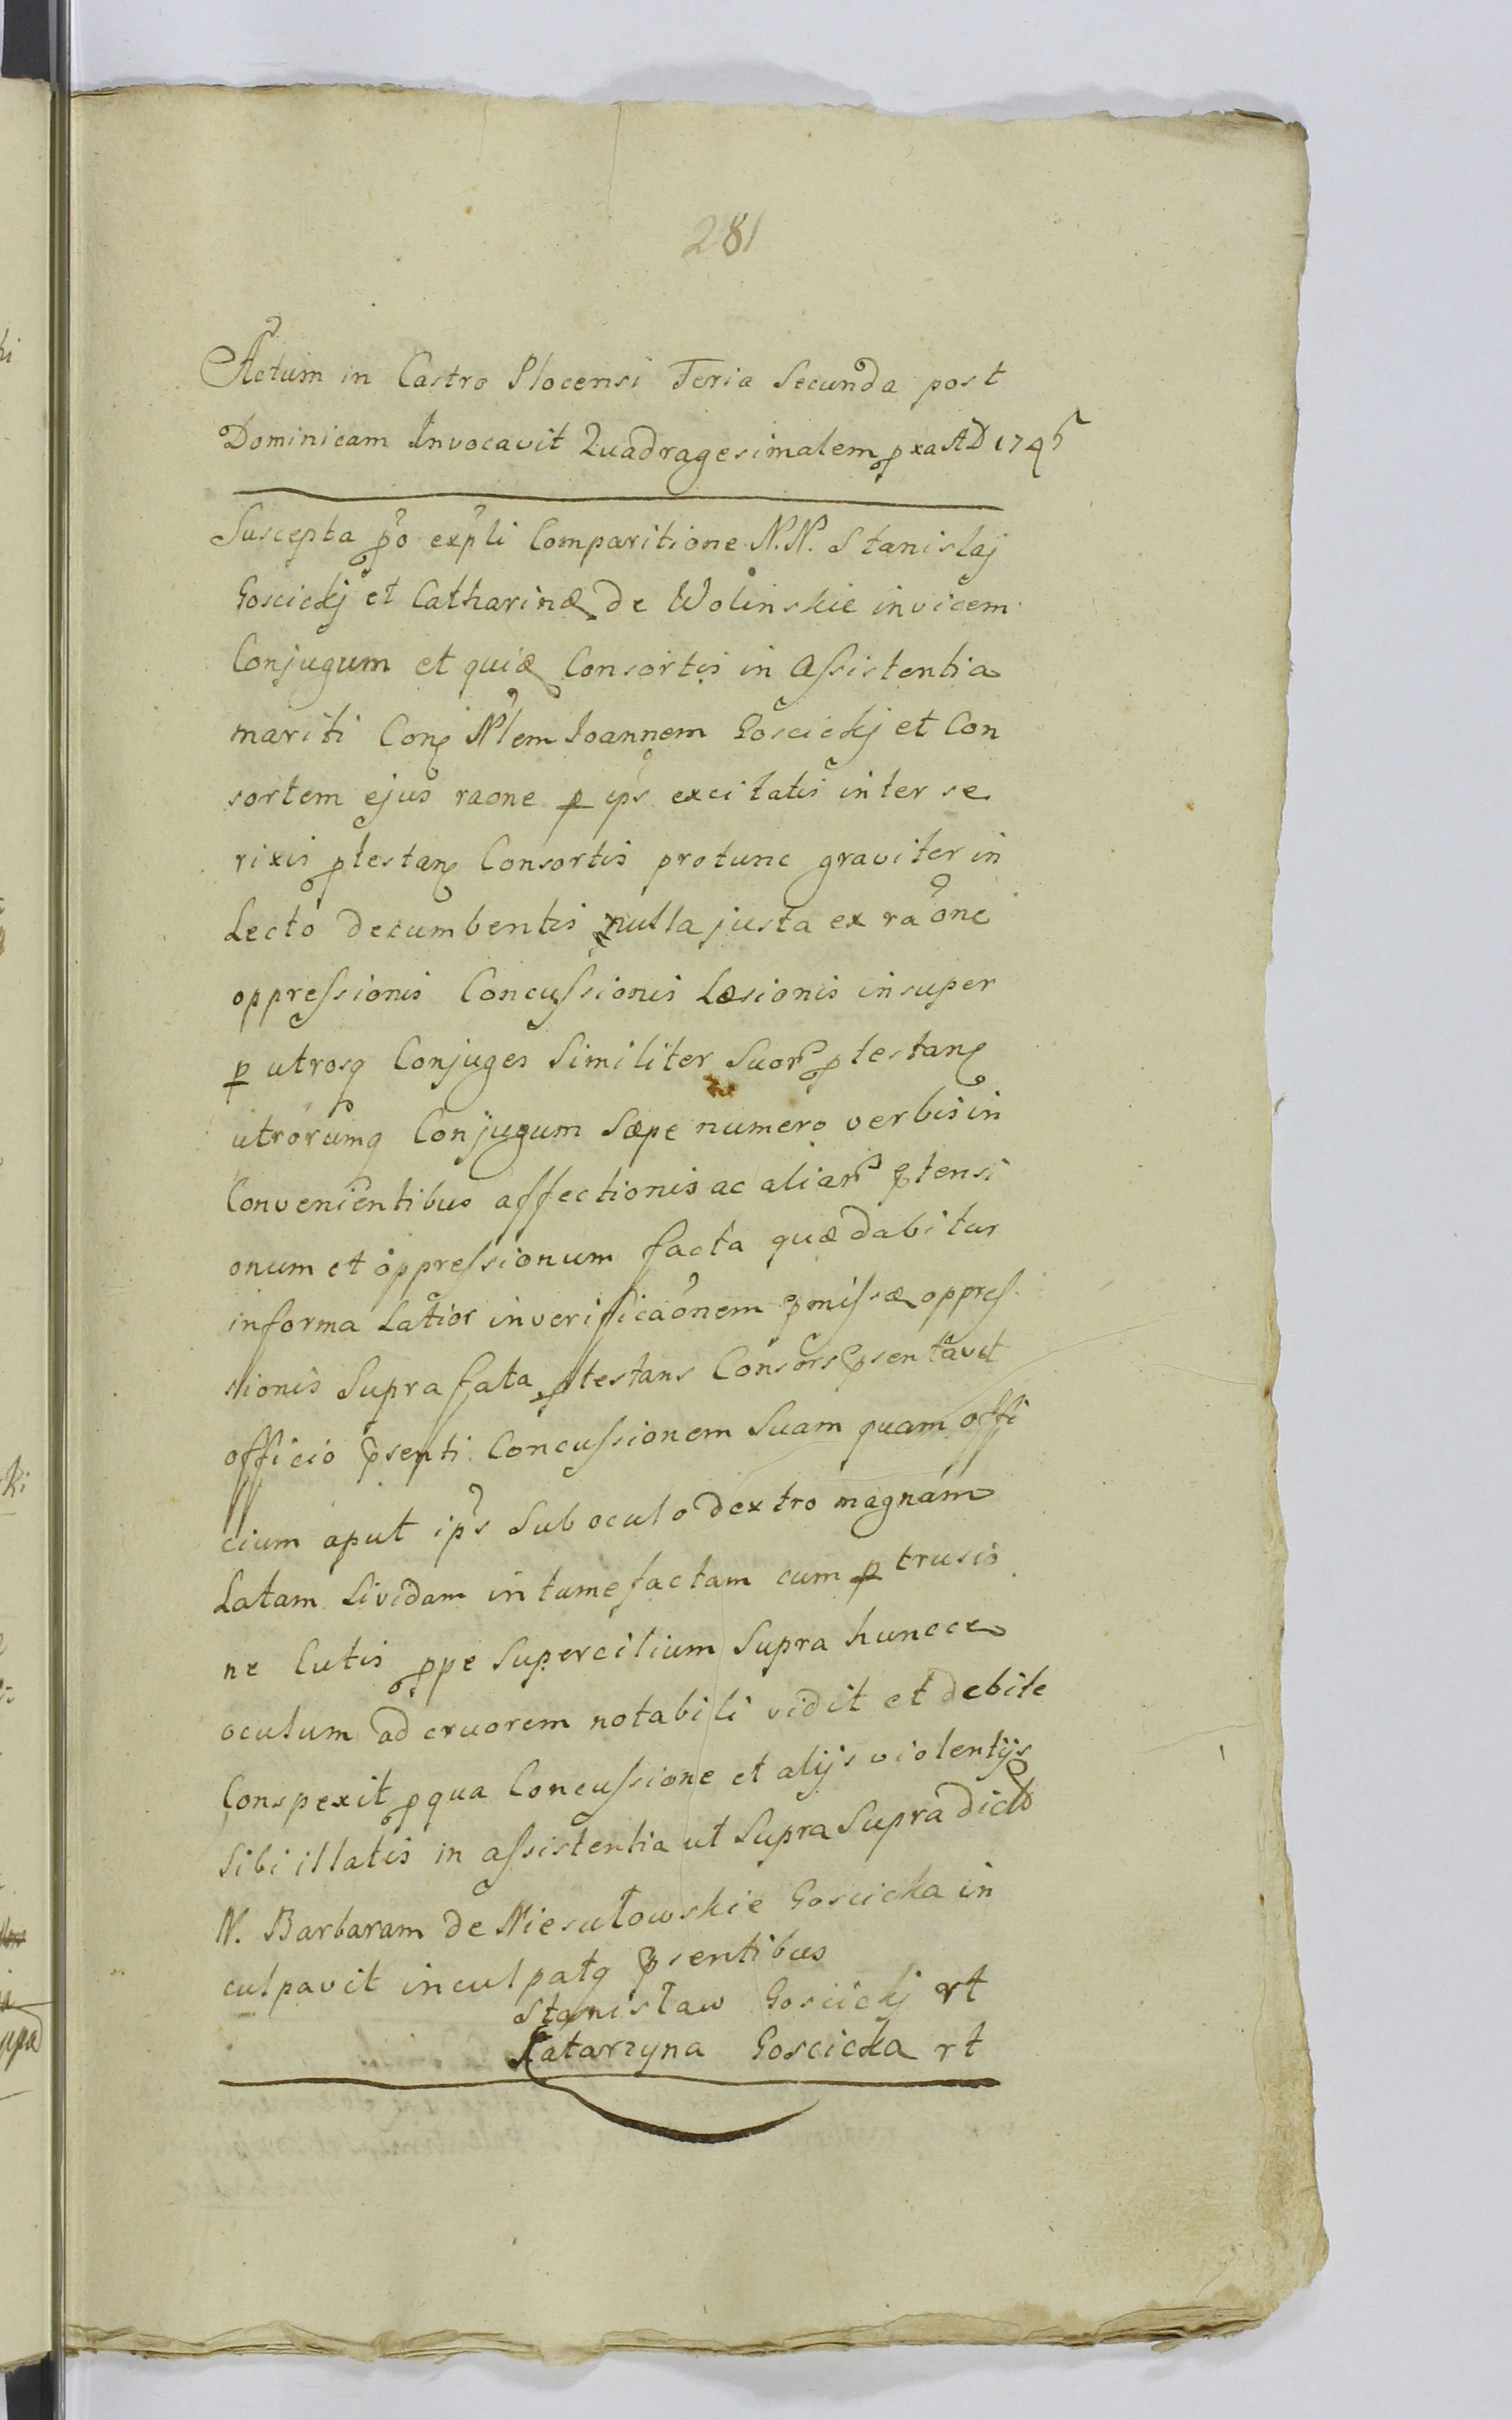 281
Actum in Castro Plocensi Feria Secunda post
Dominicam Invocavit Quadragesimalem pxa AD 174
Suscepta po expli Comparitione N.N. Stanislaj
Goscickj et Catharinæ de Wolinskie invicem
Conjugum et quidæ Consortis in assistentia
mariti Con Nlem Joannem Goscickj et Con
sortem ejus raone p ips excitatis inter se
rixis ptestan Consortis protunc graviter in
Lecto decumbentis nulla justa ex raone
oppressionis Concussionis Læsionis insuper
p utrosq Conjuges Similiter Suor ptestan
utrorumq Conjugum Sæpe numero verbis in
Convenientibus affectionis ac aliar ptensi
onum et oppressionum facta quæ dabitur
in forma Latior in verificaonem pmissæ oppres
sionis Supra fata ptestans Consors psentavit
officio psenti Concussionem Suam quam offi
cium aput ips Sub oculo dextro magnam
Latam Lividam intumefactam cum ptrusio
ne Cutis ppe Supercilium Supra huncce
oculum ad cruorem notabili vidit et debite
Conspexit p qua Concussione et alijs violentijs
Sibi illatis in assistentia ut Supra Supradicto
N. Barbaram de Niesułowskie Goscicka in
culpavit inculpatq psentibus
Stanisław Goscickj rt
Katarzyna Goscicka rt